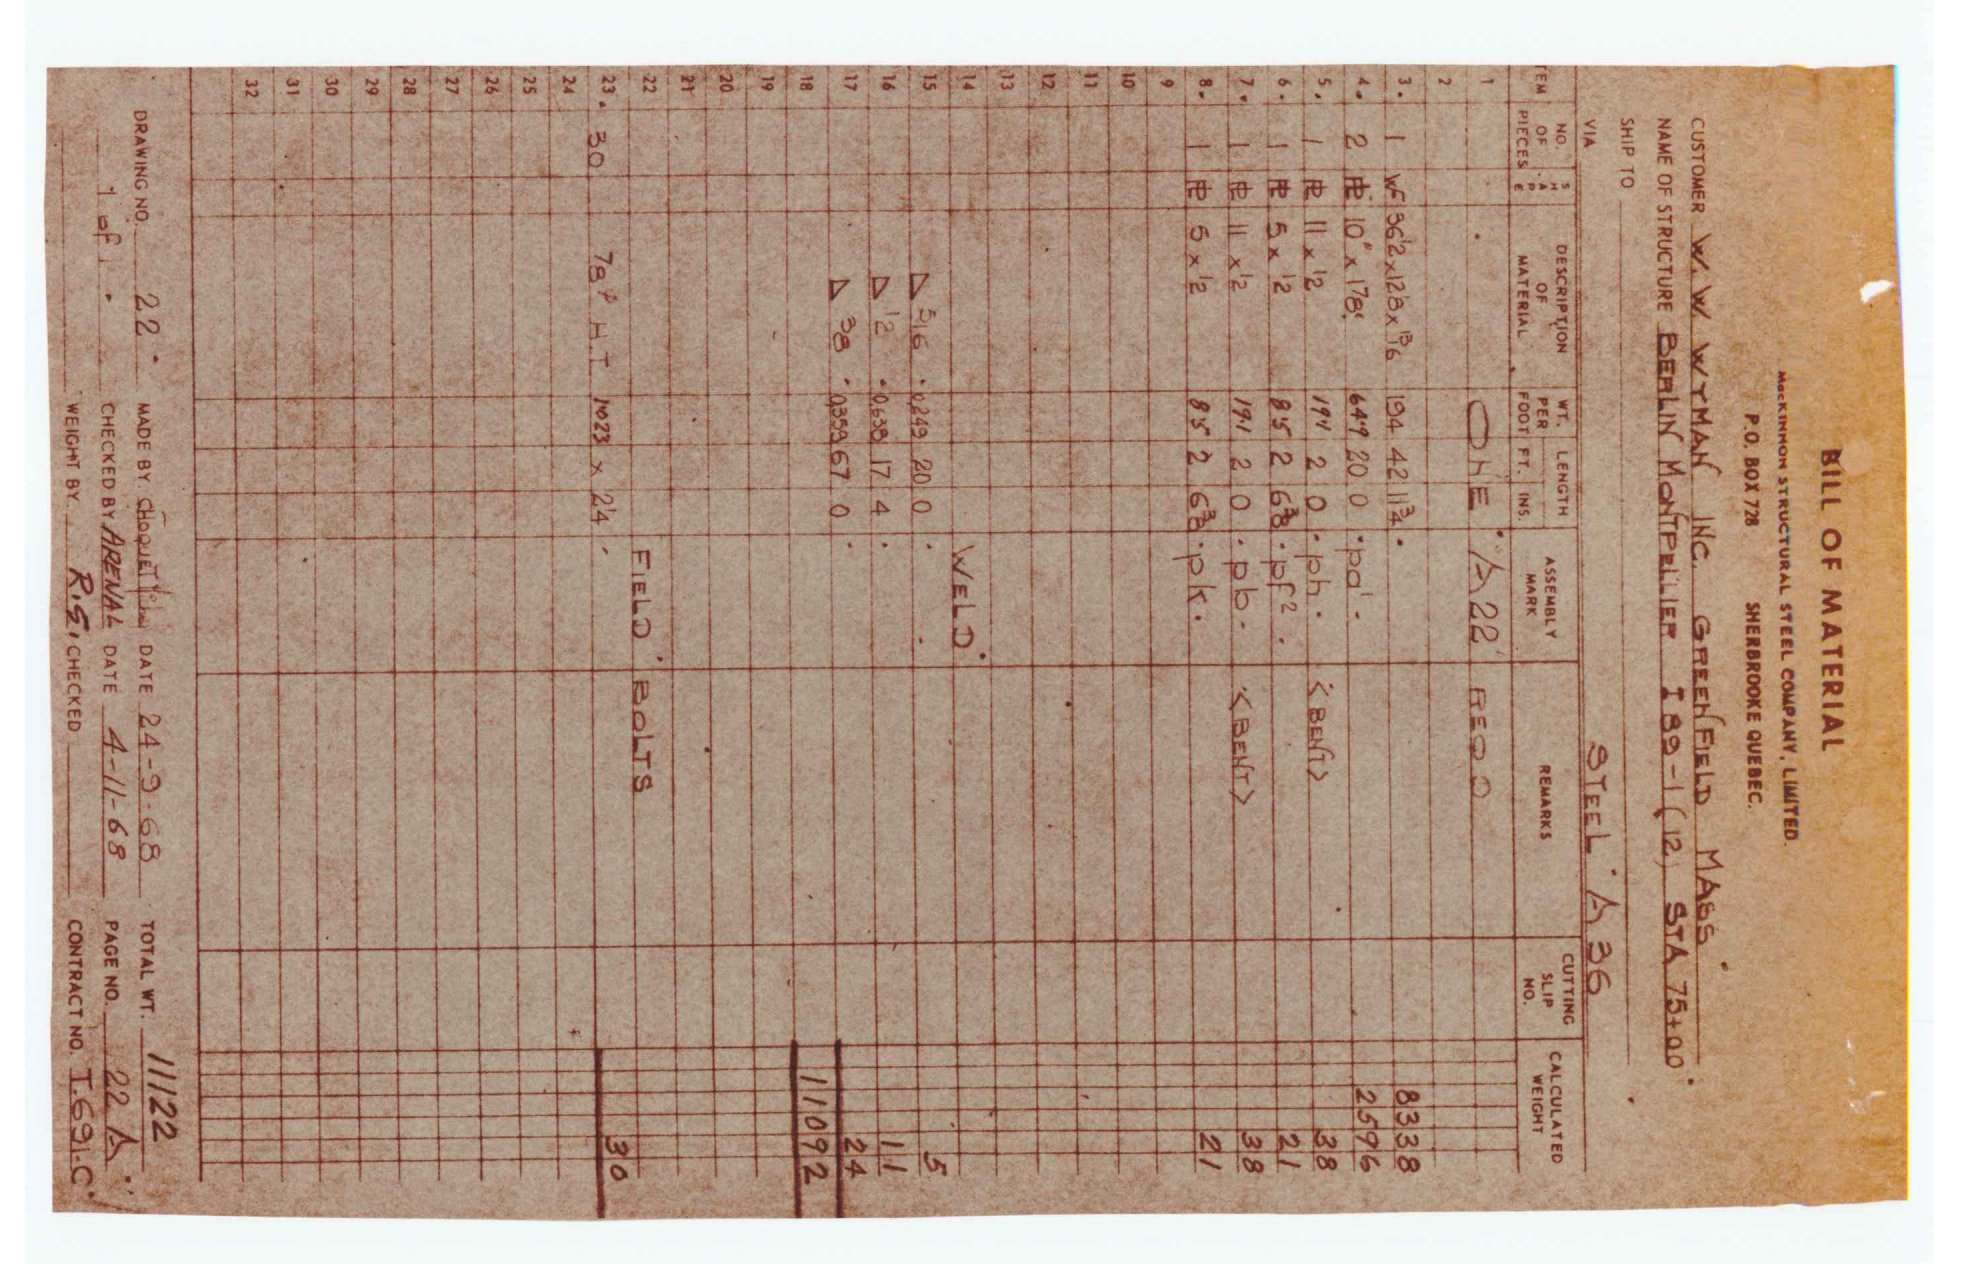 BILL OF MATERIAL
MacKINNON STRUCTURAL STEEL COMPANY, LIMITED.
P.O. BOX 728 SHERBROOKE QUEBEC.
CUSTOMER W. W. WYMAN INC. GREENFIELD MASS
NAME OF STRUCTURE BERLIN MONTPELIER I 89-1 (12) STA 75+00
SHIP TO
VIA STEEL A 36
ITEM NO. OF PIECES SHAPE DESCRIPTION OF MATERIAL WT. PER FOOT LENGTH FT. INS. ASSEMBLY MARK REMARKS CUTTING SLIP NO. CALCULATED WEIGHT
1 ONE A22 REQD
2
3. 1 WF 36 1/2 x 12 1/8 x 13/16 194 42 11 3/4 8338
4. 2 PL 10" x 1 7/8 649 20 0 pd' 2596
5. 1 PL 11 x 1/2 191 2 0 ph <BENT> 38
6. 1 PL 5 x 1/2 85 2 6 3/8 pf2 21
7. 1 PL 11 x 1/2 191 2 0 pb <BENT> 38
8. 1 PL 5 x 1/2 85 2 6 3/8 pk 21
9
10
11
12
13
14 WELD
15 5/16 .0249 20 0 5
16 1/2 .0638 17 4 11
17 3/8 .0359 67 0 24
18 11092
19
20
21
22 FIELD BOLTS
23. 30 7/8 φ HT 1023 x 2 1/4 30
24
25
26
27
28
29
30
31
32
DRAWING NO. 22 MADE BY CHOQUETTE DATE 24-9-68 TOTAL WT. 11122
1 of 1 CHECKED BY ARENAL DATE 4-11-68 PAGE NO. 22 A
WEIGHT BY. R.G. CHECKED CONTRACT NO. I.691-C